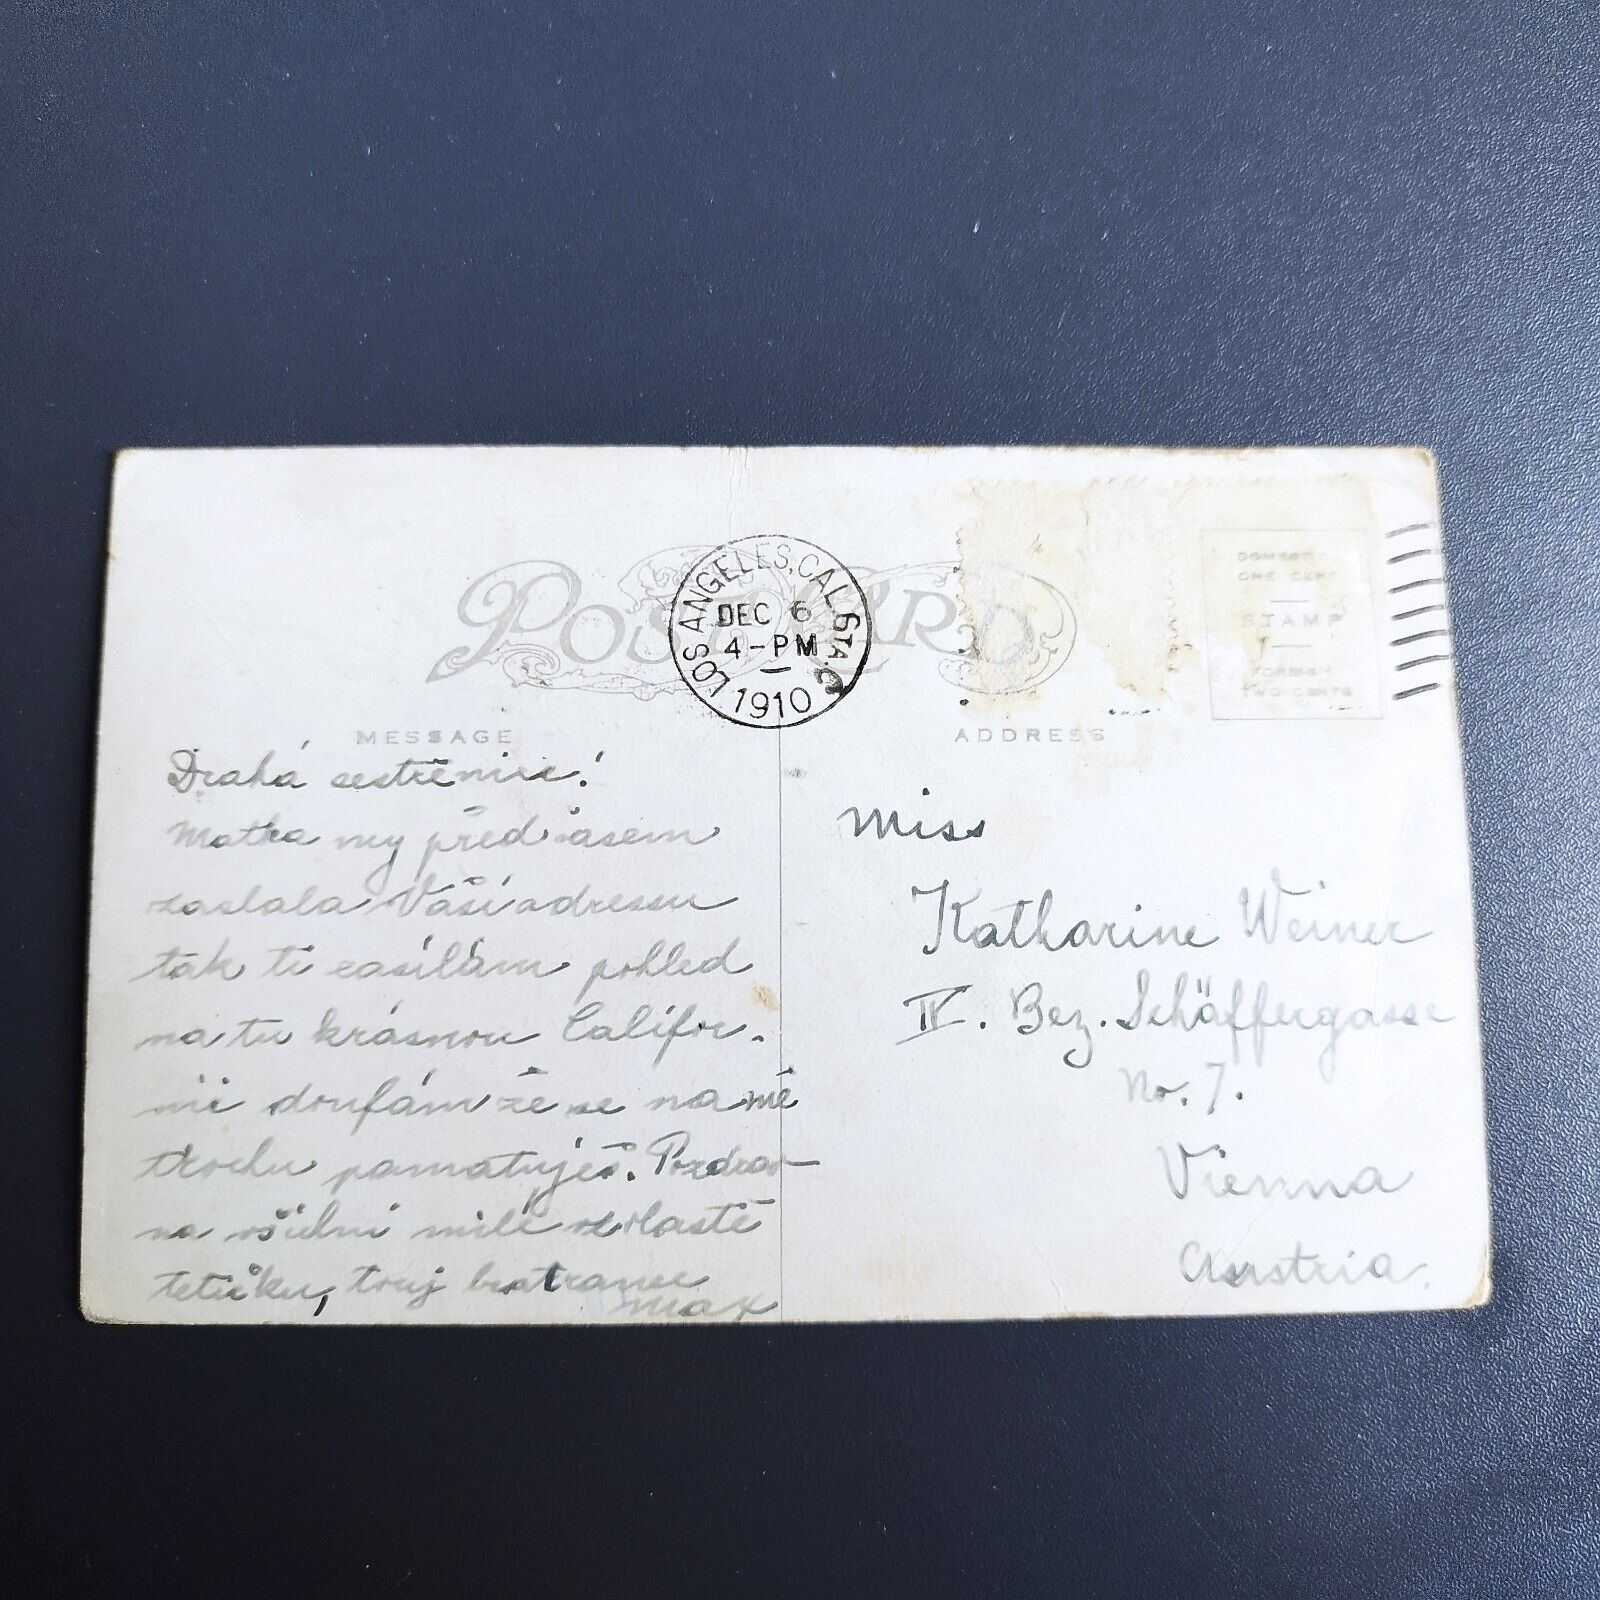 POST CARD
LOS ANGELES, CAL. STA. C
DEC 6
4-PM
1910
DOMESTIC
ONE CENT
STAMP
FOREIGN
TWO CENTS
MESSAGE
Drahá sestřenice!
Matka my před časem
zaslala Vaši adressu
tak ti zasílám pohled
na tu krásnou Califor-
nii doufám že se na mě
trochu pamatuješ. Pozdrav
na všichni milé obzlaště
tetičku, tvůj bratranec
Max
ADDRESS
Miss
Katharine Weiner
IV. Bez. Schäffergasse
No. 7.
Vienna
Austria.